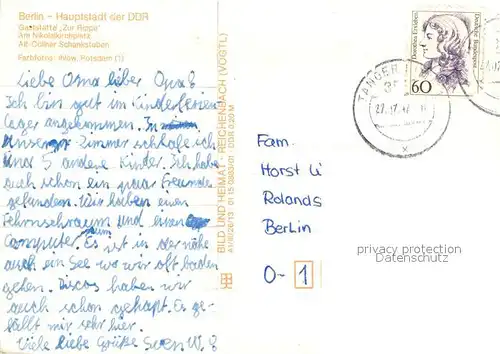 Berlin – Hauptstadt der DDR
Gaststätte „Zur Rippe"
Am Nikolaikirchplatz
Alt-Cöllner Schankstuben
Farbfotos: Ihlow, Potsdam (1)
Liebe Oma lieber Opa!
Ich bin gut im Kinderferien
lager angekommen. In
Unserem Zimmer schlafe ich
und 5 andere Kinder. Ich habe
auch schon ein paar Freunde
gefunden. Wir haben einen
Fehrnsehraum und einen
Computerraum. Es ist in der nähe
auch ein See wo wir oft baden
gehen. Discos haben wir
auch schon gehapt. Es ge-
fällt mir sehr hier.
Viele liebe Grüße Sven W.
BILD UND HEIMAT REICHENBACH (VOGTL)
01 15 0363/01 DDR 0,20 M
Dorothea Erxleben
Deutsche Bundespost
60
TANGER
Fam.
Horst U
Rolands
Berlin
O-1
privacy protection
Datenschutz